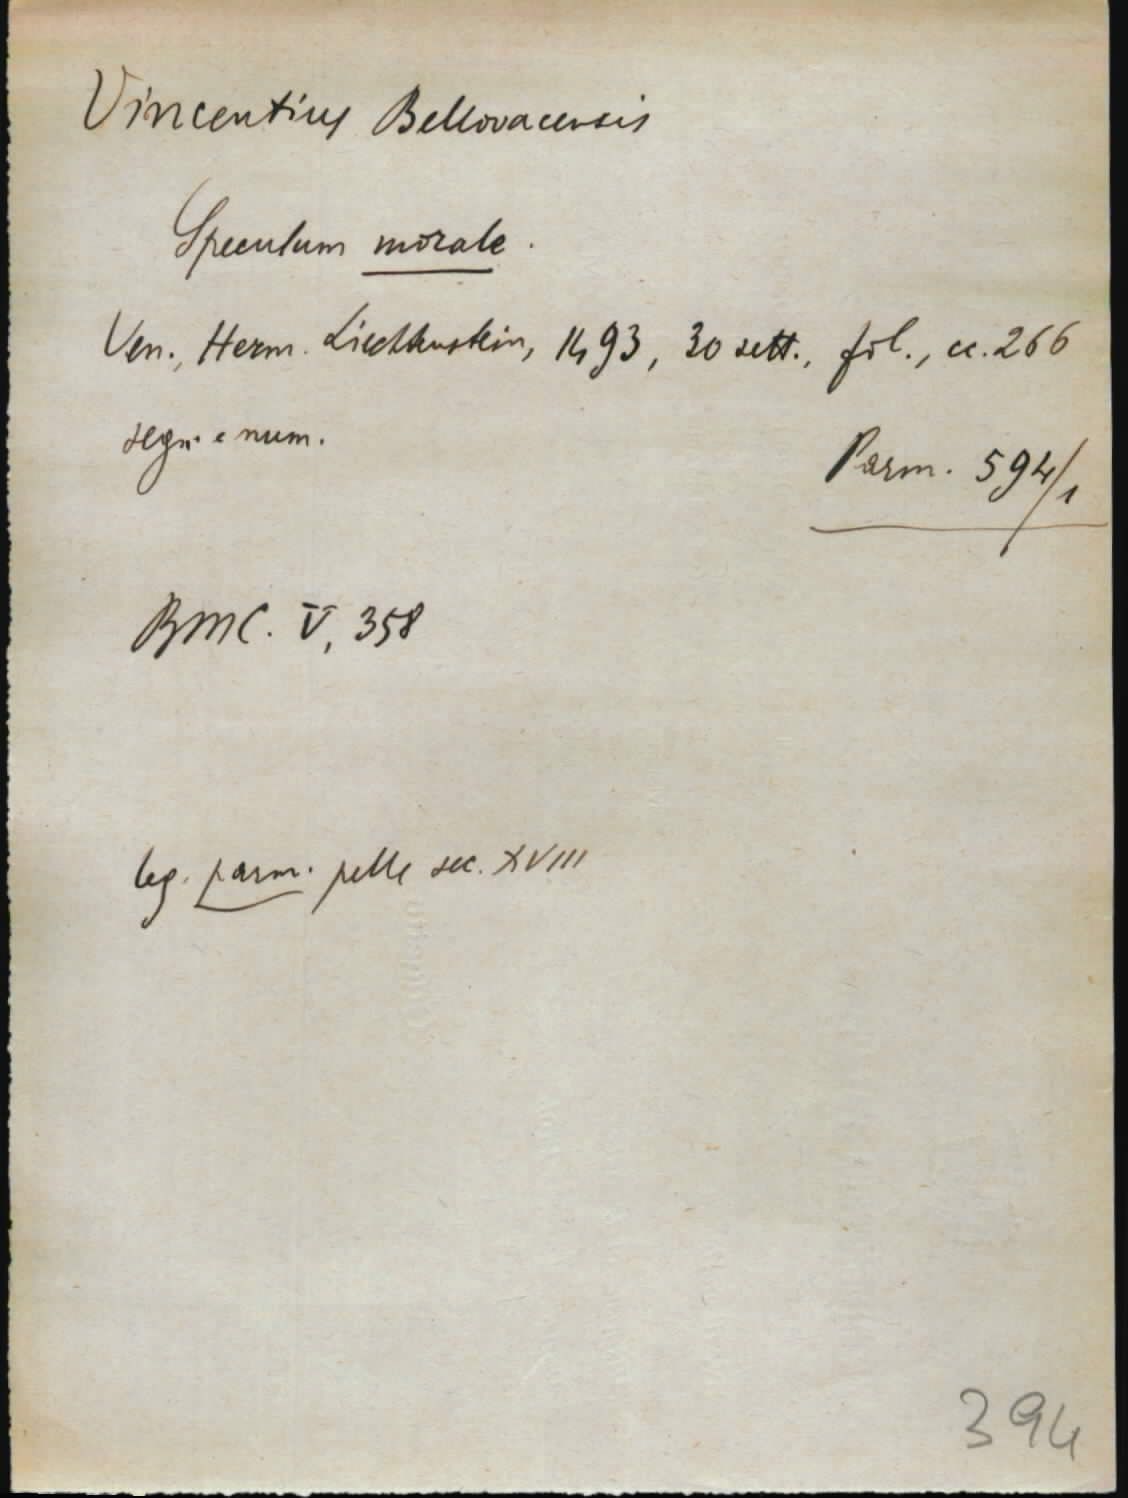 Vincentius Bellovacensis
Speculum morale.
Ven., Herm. Liechtenstein, 1493, 30 sett., fol., cc. 266
segn. e num.
Parm. 594/1
BMC. V, 358
leg. parm. pelle sec. XVIII
394